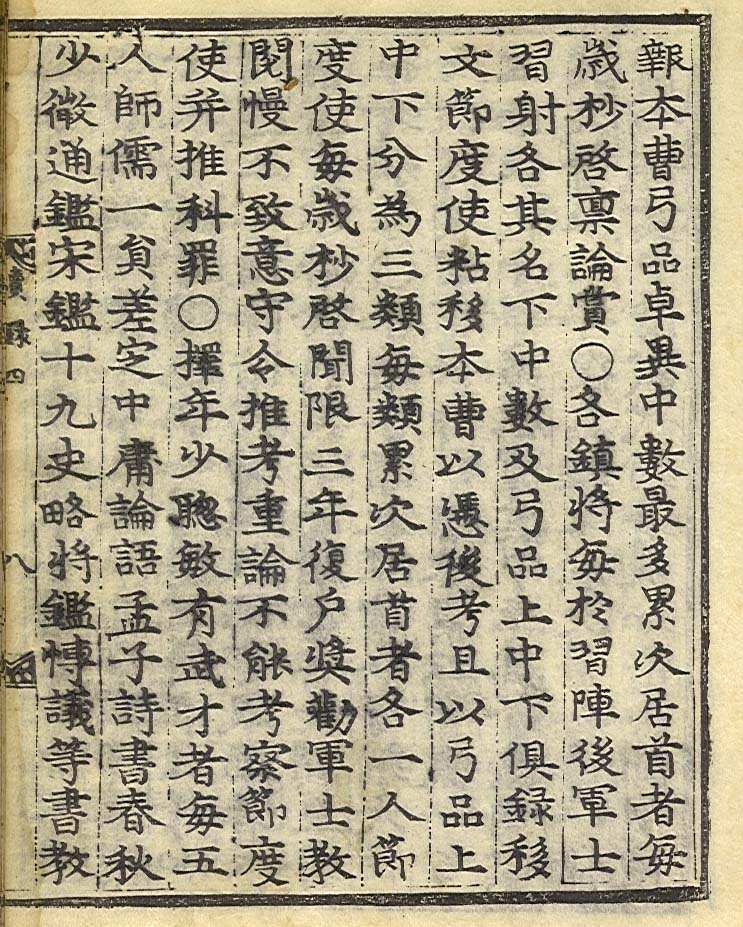 報本曹弓品卓異中數最多累次居首者每
歲杪啓稟論賞〇各鎮將每於習陣後軍士
習射各其名下中數及弓品上中下俱録移
文節度使粘移本曹以憑後考且以弓品上
中下分為三類每類累次居首者各一人節
度使每歲杪啓聞限三年復戶奬勸軍士教
閱慢不致意守令推考重論不能考察節度
使并推科罪〇擇年少聰敏有武才者每五
人師儒一貟差定中庸論語孟子詩書春秋
少微通鑑宋鑑十九史略將鑑博議等書教
續録四
八